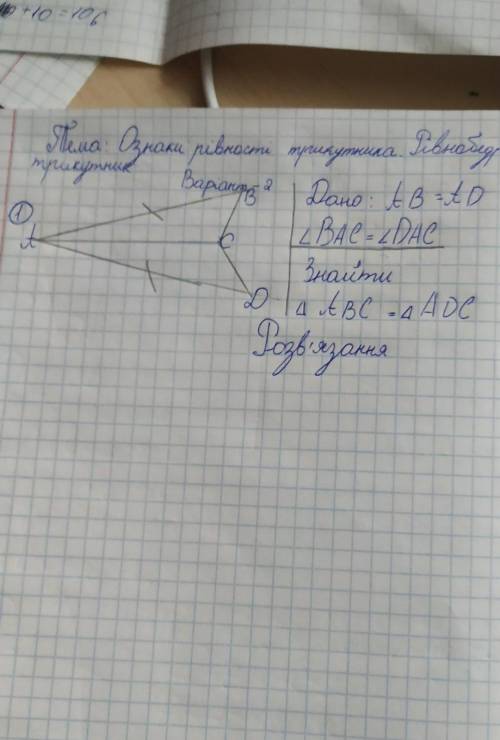 +10=106
Тема: Ознаки рівности трикутника. Рівнобедр
трикутник
Варіант 2
①
A
B
C
D
Дано: AB=AD
∠BAC=∠DAC
Знайти
△ABC=△ADC
Розв'язання